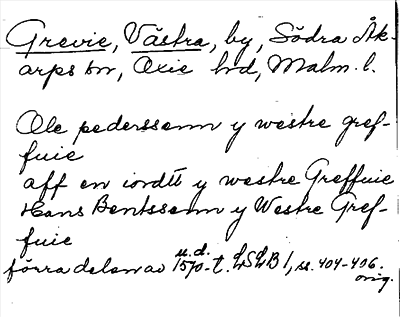 Grevie, Västra, by, Södra Åk-
arps sn, Oxie hd, Malm. l.
Ole pederssenn y westre gref-
fuie
aff en iordtt y westre Greffuie
Hans Bentssenn y Westre Gref-
fuie
förra delen av u.d. 1570-t. LSLB 1, s. 404-406.
orig.